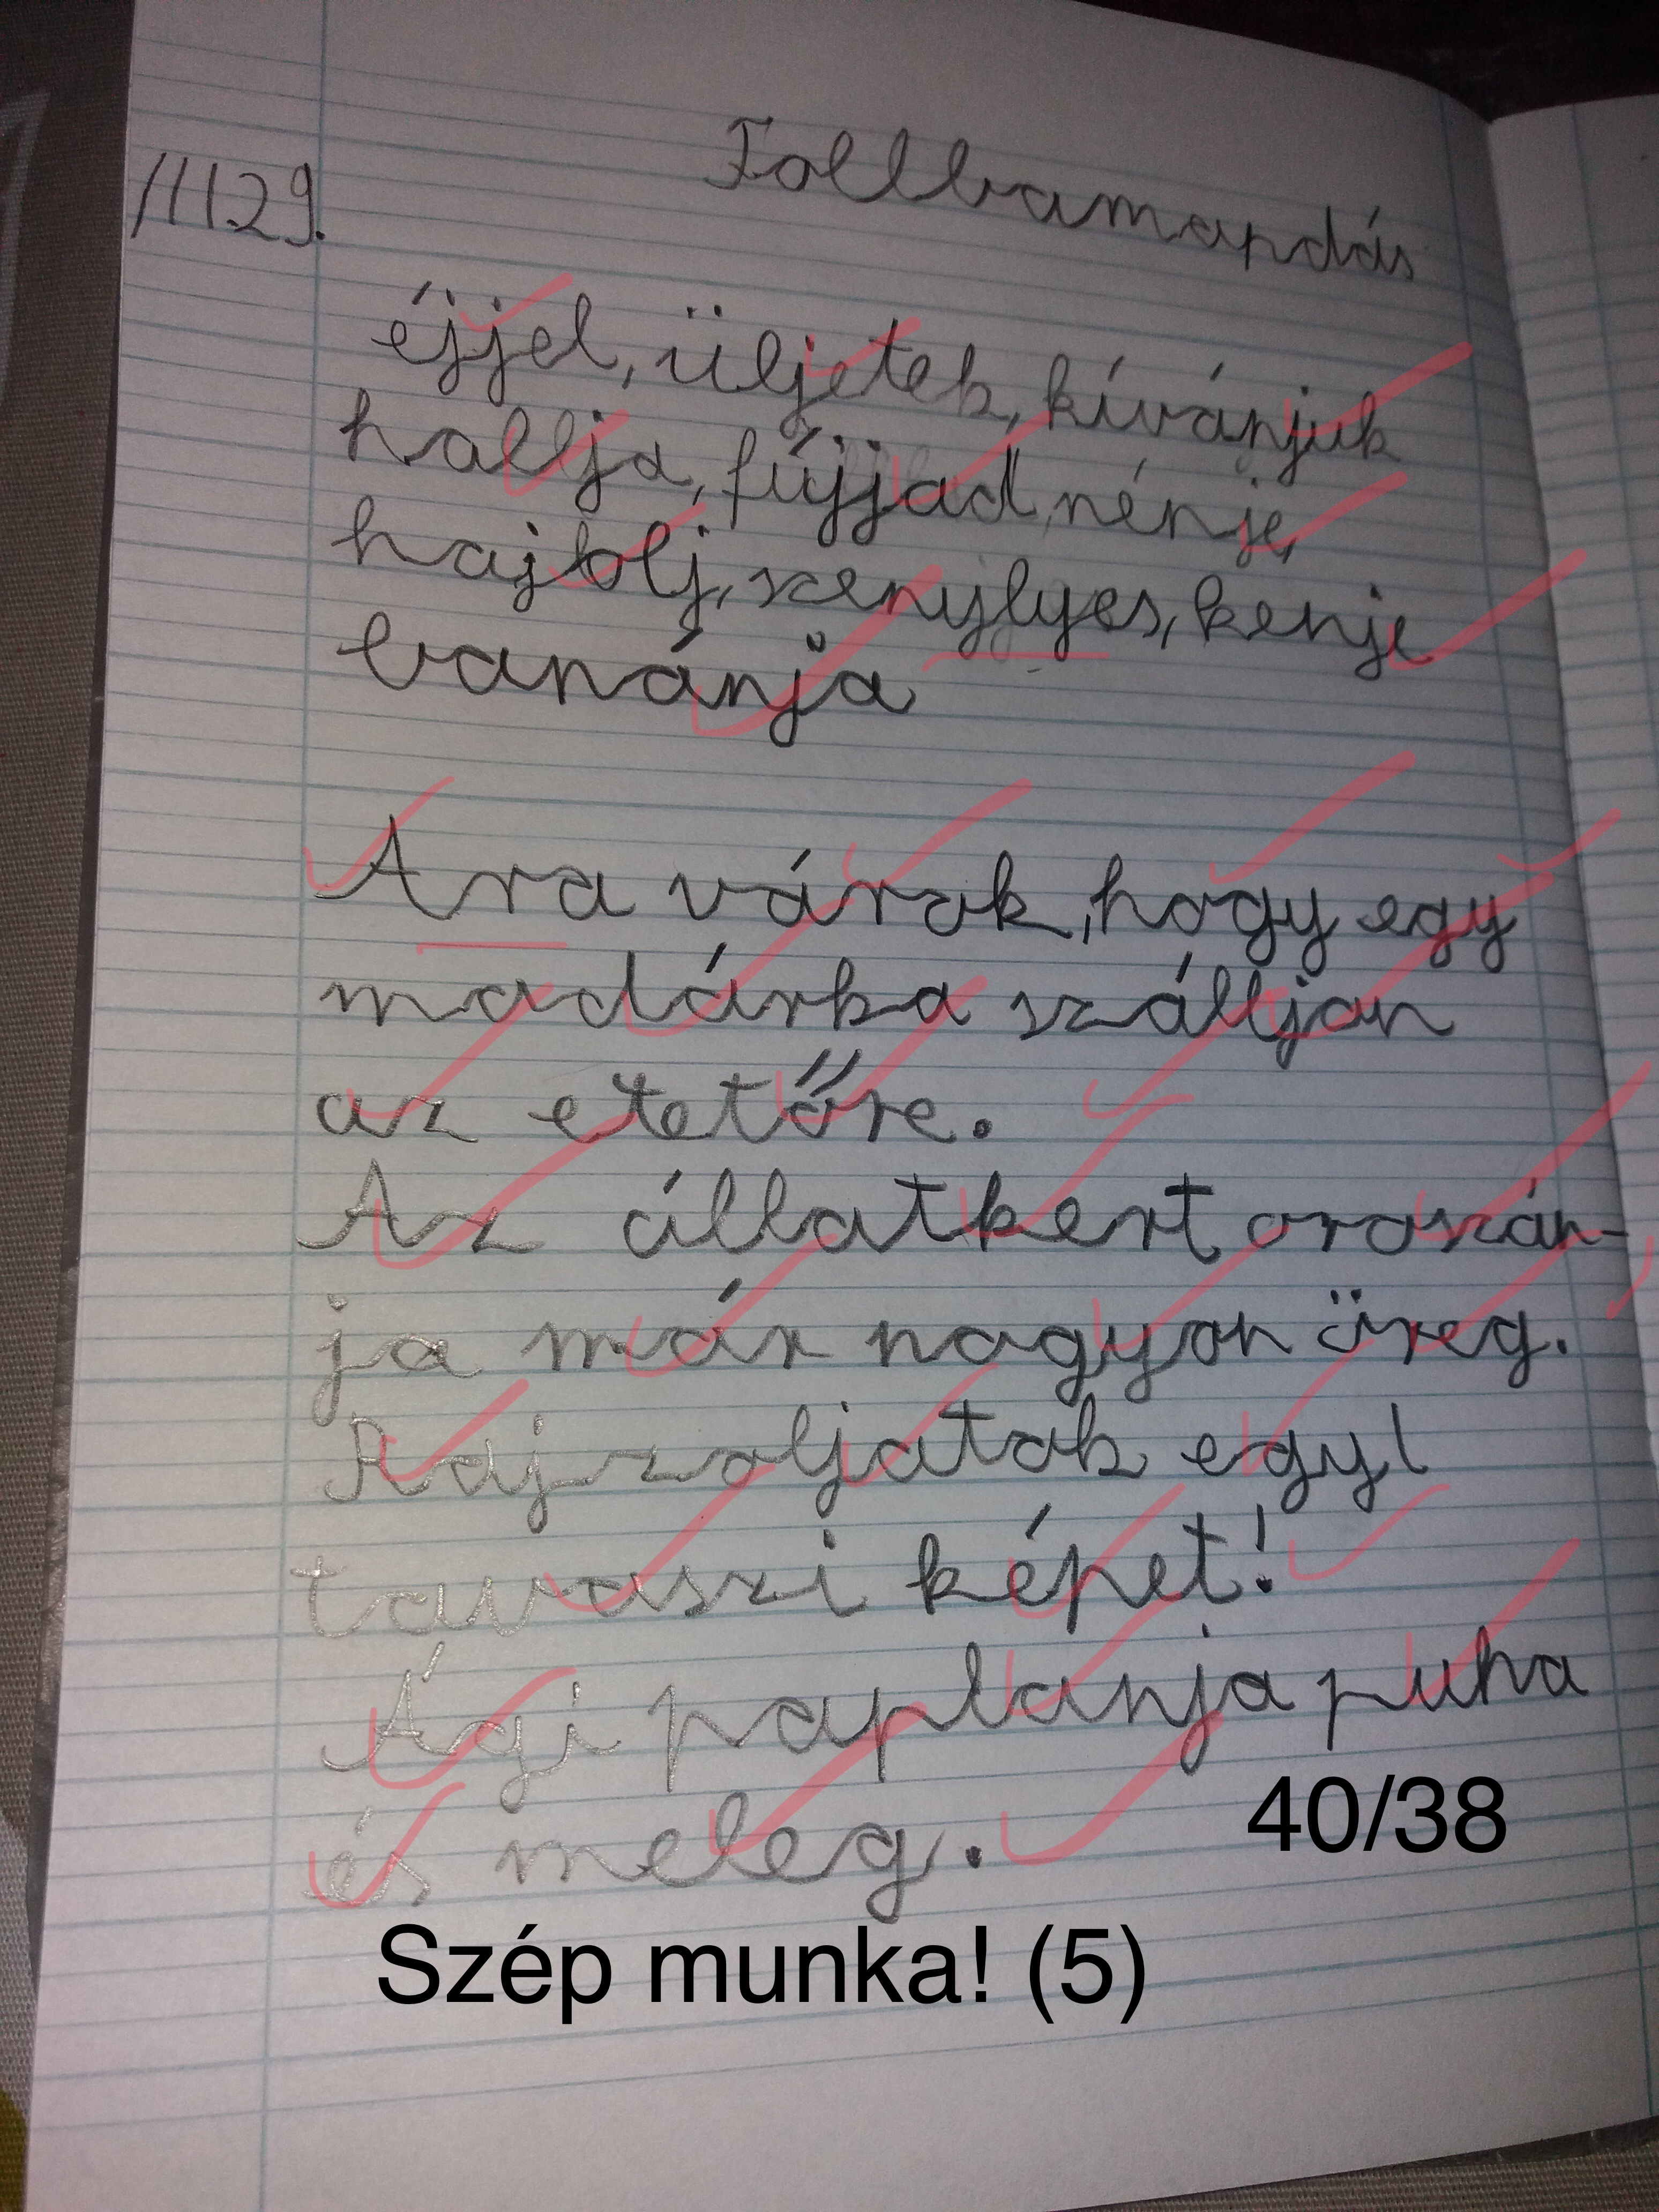 Tollbamondás
III.29.
éjjel, üljetek, kívánjuk
hallja, fújjad, nénje,
hajtolj, szenylyes, kenje
banánja
Ara várok, hogy egy
madárka szálljon
az etetőre.
Az állatkert oroszán-
ja már nagyon öreg.
Rajzoljatok egy
tavaszi képet!
Ági paplanja puha
és meleg.
40/38
Szép munka! (5)